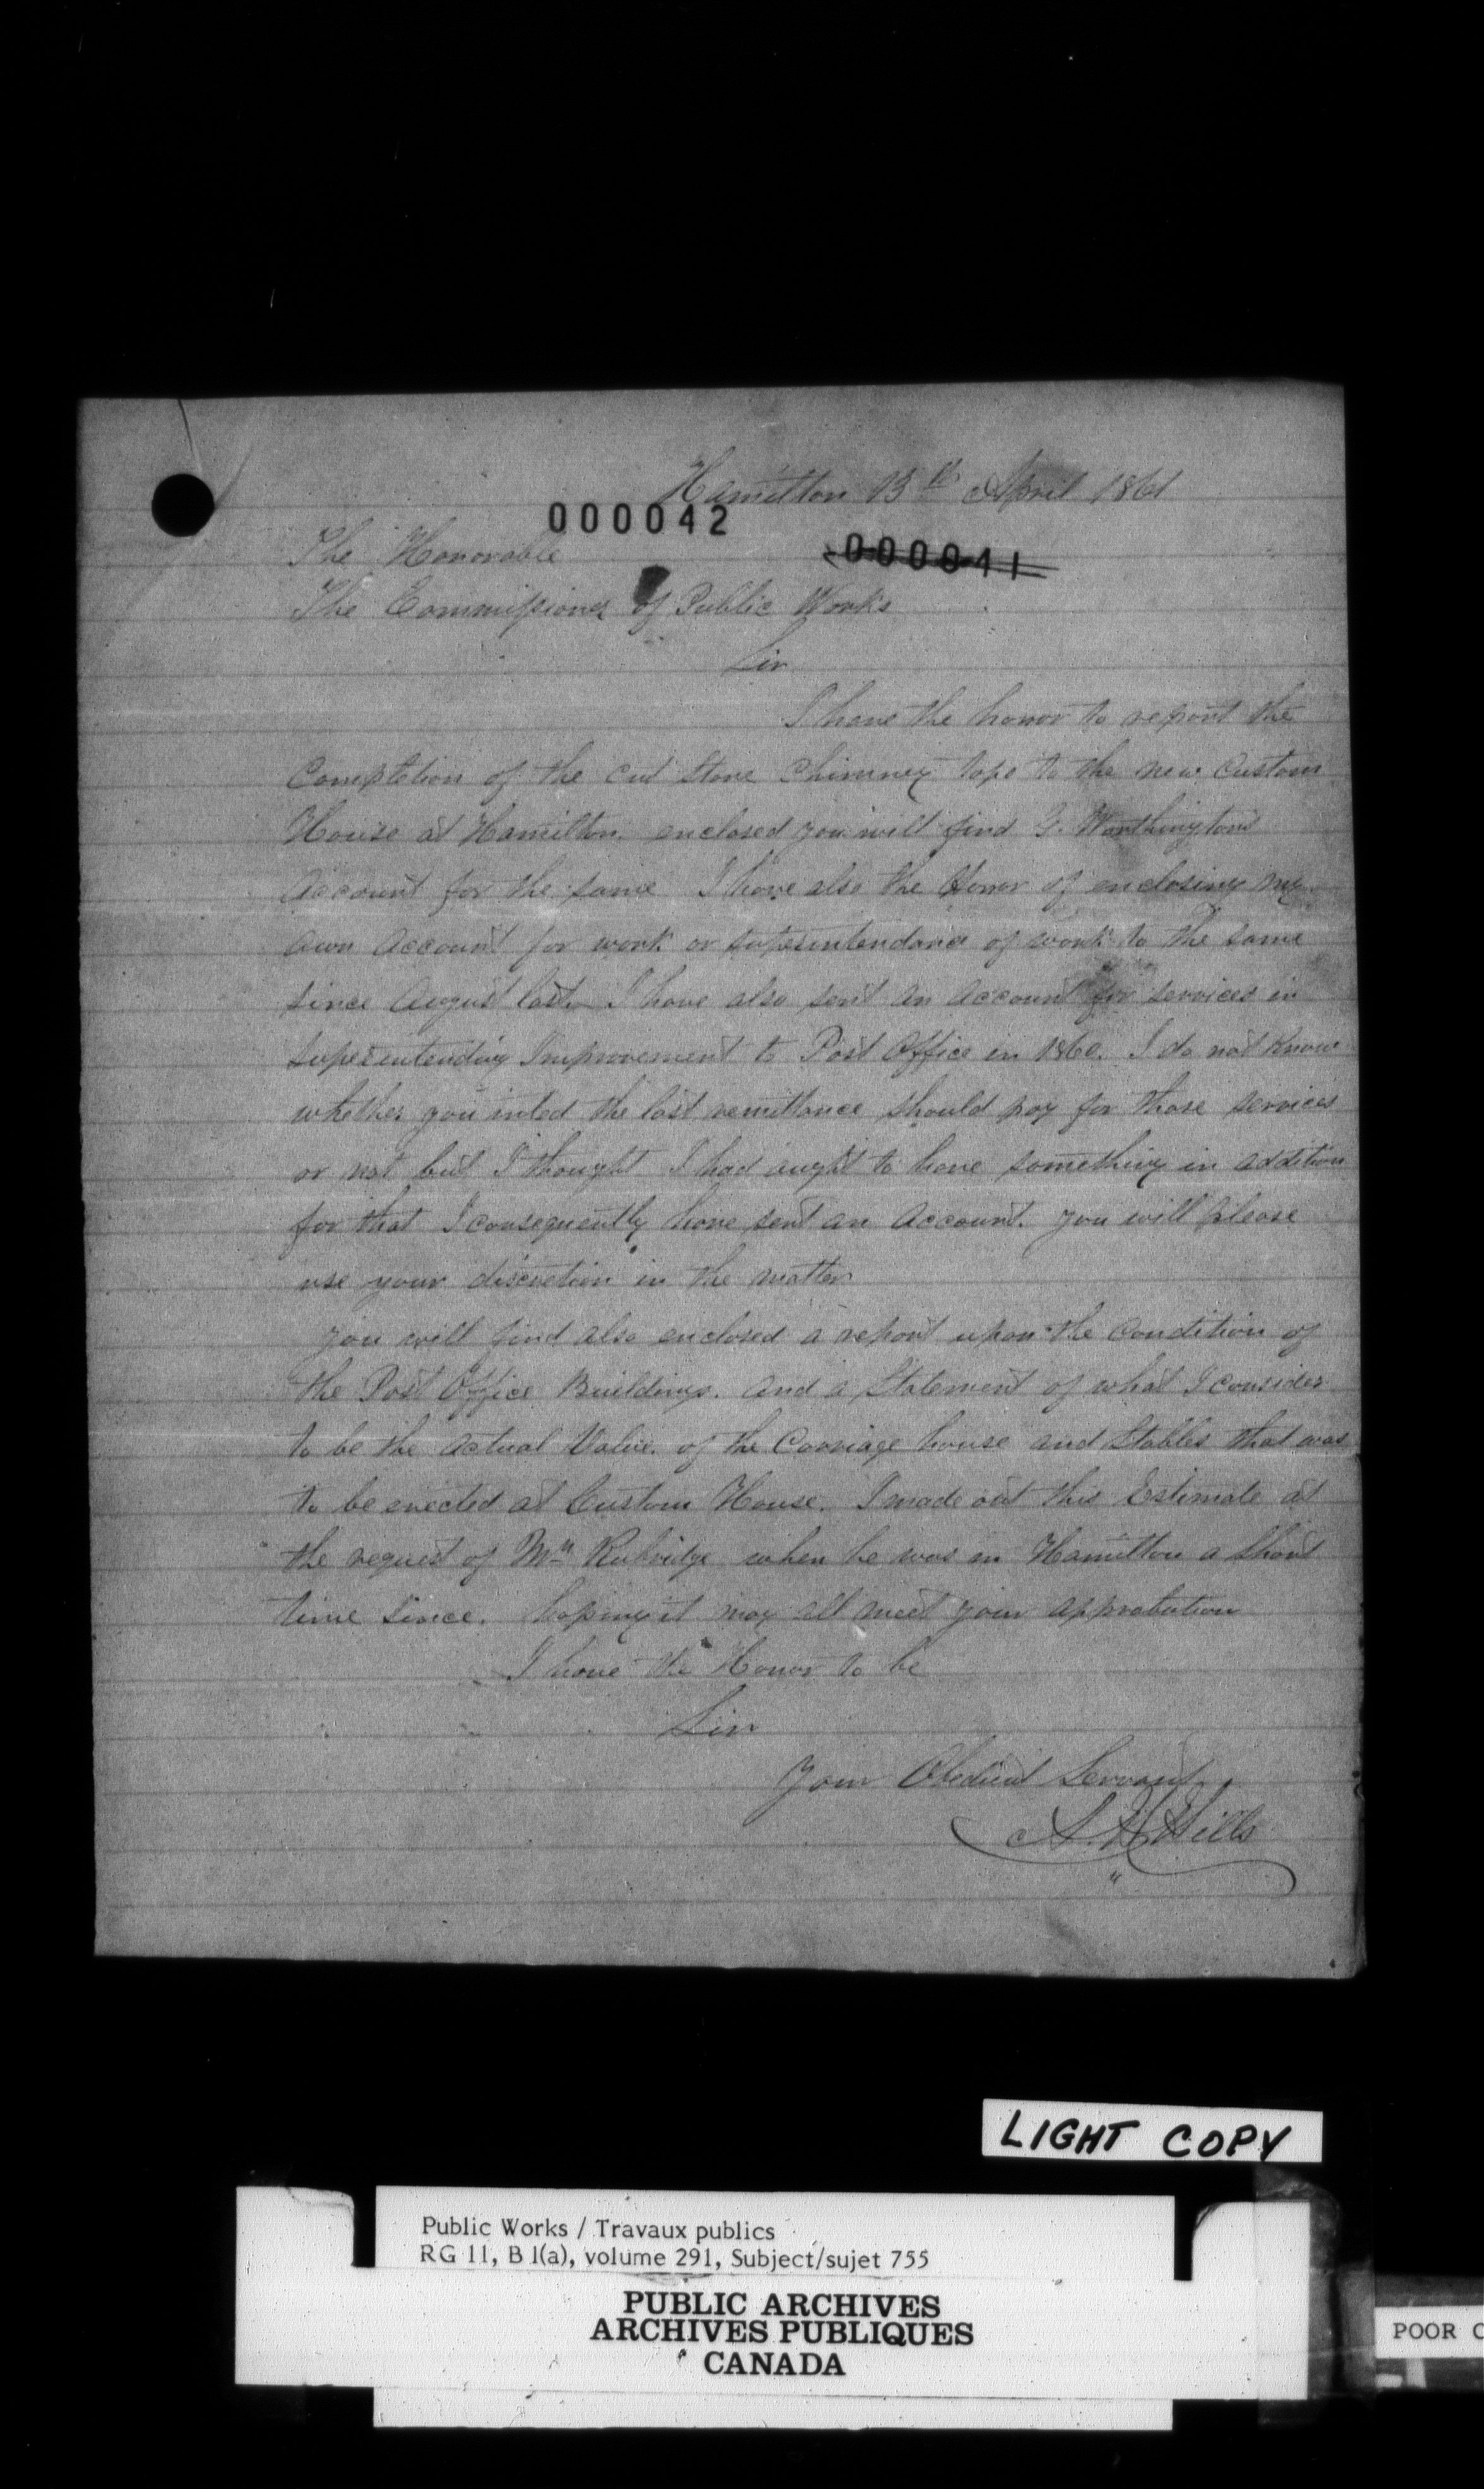 Hamilton 13th April 1861
000042
000041
The Honorable
The Commissioner of Public Works
Sir
I have the honor to report the
Completion of the cut stone Chimney tops to the new Custom
House at Hamilton. enclosed you will find G. Worthingtons
Account for the same I have also the Honor of enclosing my
own Account for work or superintendance of work to the same
since August last. I have also sent an Account for services in
superintending Improvement to Post Office in 1860. I do not know
whether you inted the last remittance should pay for those services
or not but I thought I had aught to have something in addition
for that I consequently have sent an Account. you will please
use your discretion in the matter
you will find also enclosed a report upon the Condition of
the Post Office Buildings. and a Statement of what I consider
to be the actual Value. of the Carriage house and Stables that was
to be erected at Custom House. I made out this Estimate at
the request of Mr Rubidge when he was in Hamilton a short
time since. hoping it may all meet your approbation
I have the Honor to be
Sir
Your Obedient Servant
A. H. Hills
LIGHT COPY
Public Works / Travaux publics
RG 11, B 1(a), volume 291, Subject/sujet 755
PUBLIC ARCHIVES
ARCHIVES PUBLIQUES
CANADA
POOR C